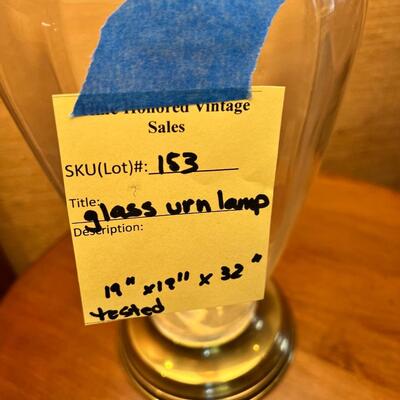 Time Honored Vintage
Sales
SKU(Lot)#: 153
Title: glass urn lamp
Description:
19" x19" x 32"
tested